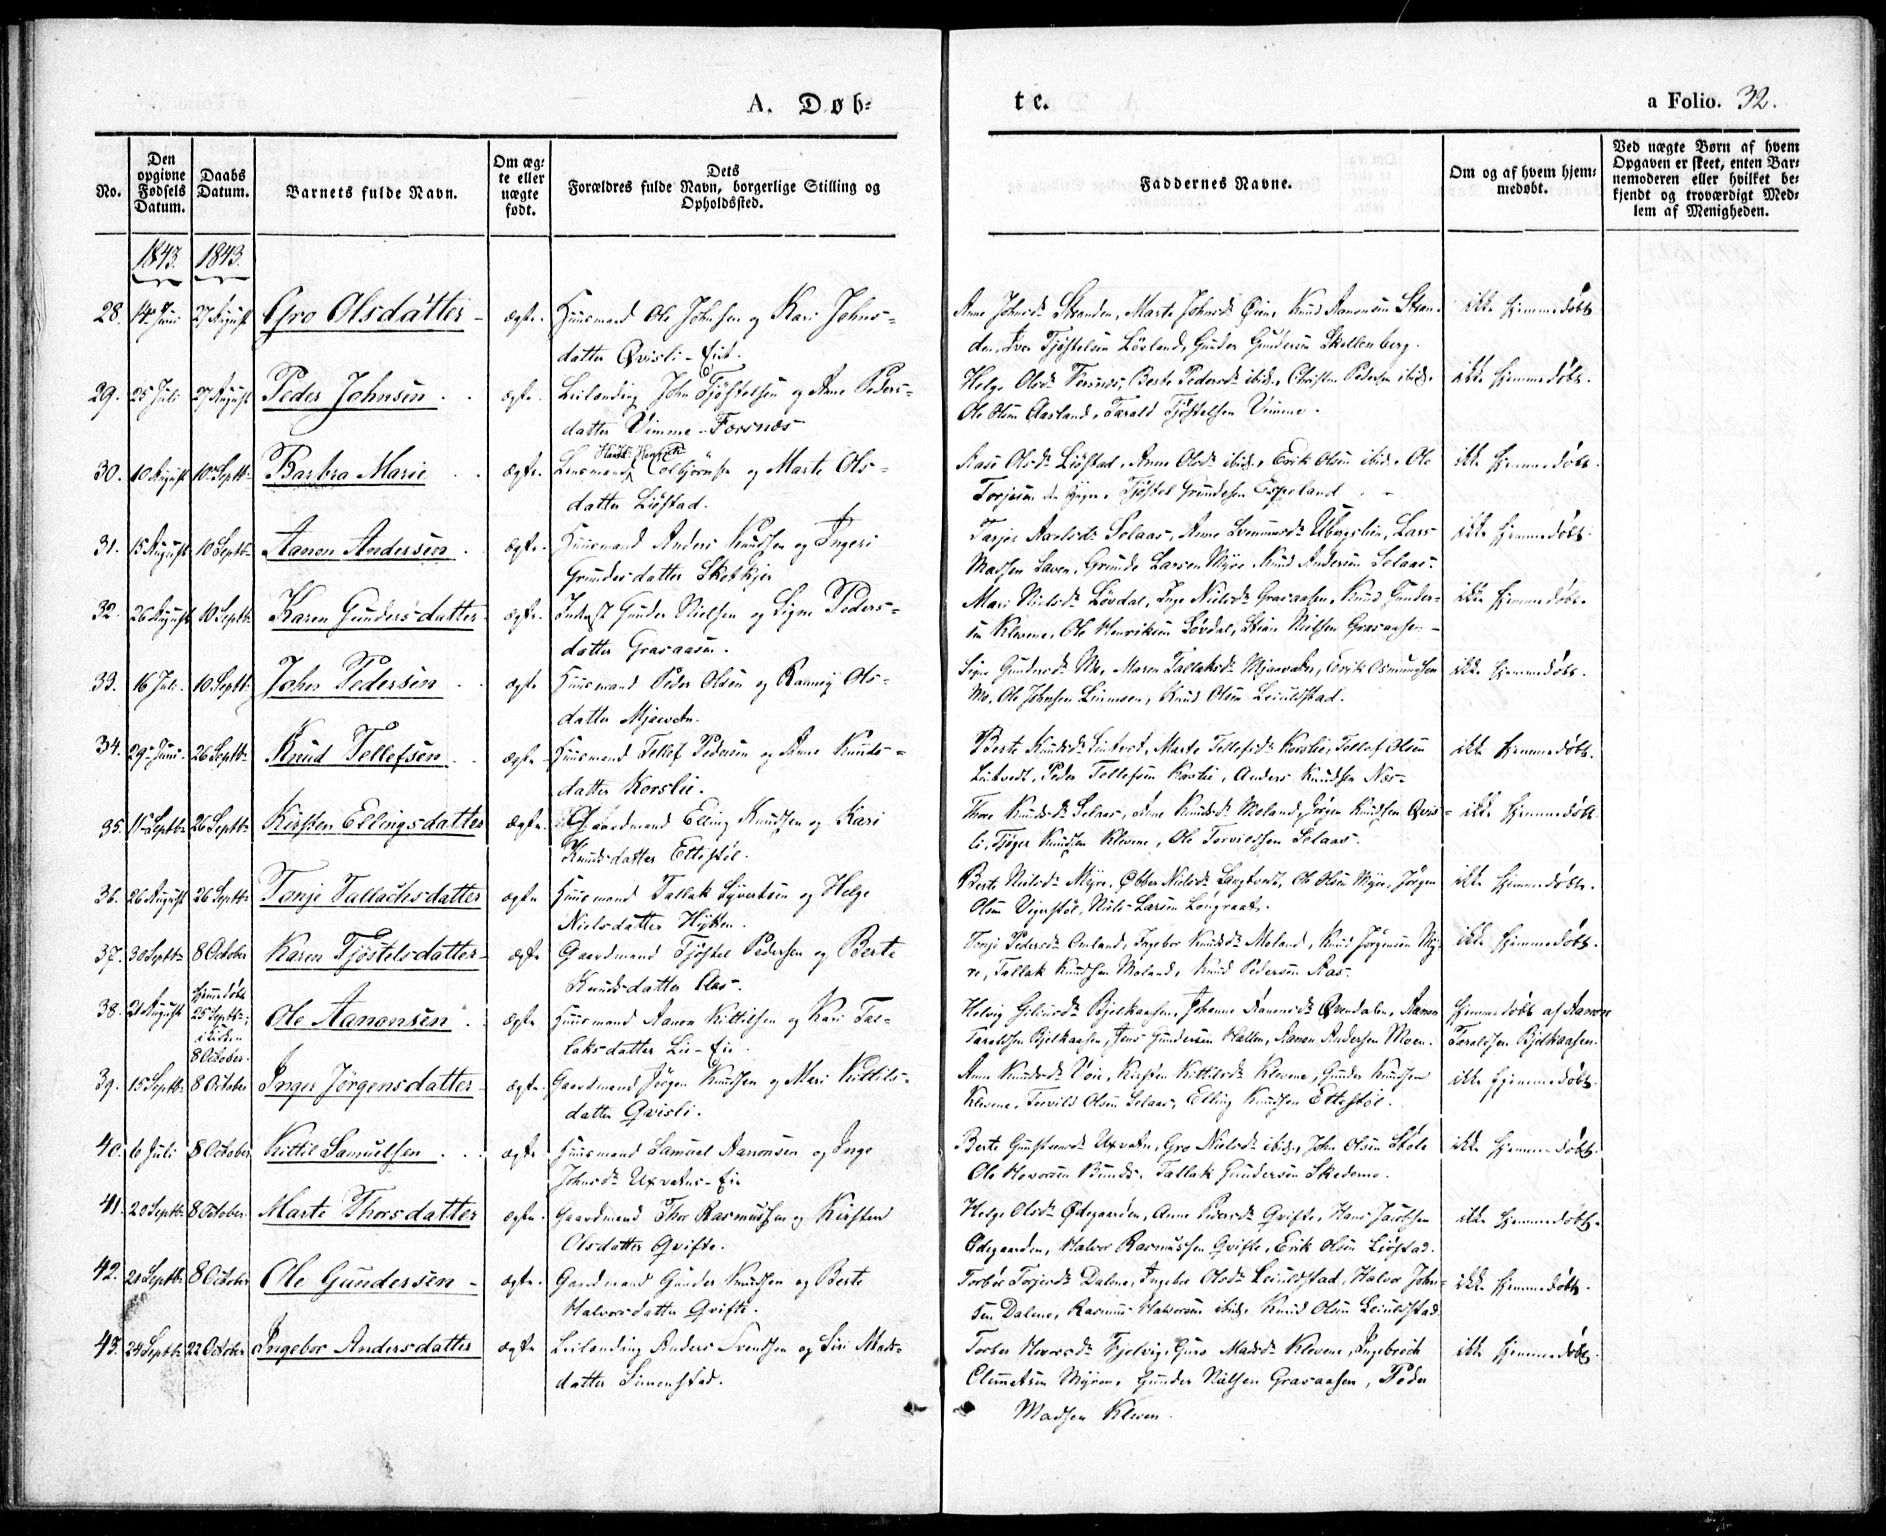 A. Døb-
te.
a Folio. 32.
No.
Den opgivne Fødsels Datum.
Daabs Datum.
Barnets fulde Navn.
Om ægte eller uægte født.
Dets Forældres fulde Navn, borgerlige Stilling og Opholdssted.
Faddernes Navne.
Om og af hvem hjemmedøbt.
Ved uægte Børn af hvem Opgaven er skeet, enten Barnemoderen eller hvilket bekjendt og troværdigt Medlem af Menigheden.
1843. 1843.
28. 14de Juni 27 August Gro Olsdatter ægte. Huusmand Ole Johnsen og Kari Johns-
datter Qvisli-Eie.
Anne Johnsdr Stranden, Marte Johnsdr Øien, Knud Aanonsen Stran-
den, Iver Tjøstelsen Løvland, Gunder Gundersen Skellenberg.
ikke hjemmedøbt.
29. 25 Juli 27 August Peder Johnsen ægte. Leilænding John Tjøstelsen og Anne Peders-
datter Vimme-Forsnæs
Helge Olsdr Forsnæs, Berte Pedersdr ibid., Christen Pedersen ibid.,
Ole Olsen Aasland, Tarald Tjøstelsen Vimme.
ikke hjemmedøbt.
30. 10 August 10 Septbr Barbra Marie ægte. Lensmand Colbjørnsen og Marte Ols-
datter Liøstad.
Aase Olsdr Liøstad, Anne Olsdr ibid., Erik Olsen ibid., Ole
Torjesen, Tjøstel Grundesen Espeland
ikke hjemmedøbt.
31. 15 August 10 Septbr Aanon Andersen ægte. Huusmand Anders Knudsen og Ingeri
Grundesdatter Skotkjer
Selaas, Anne, Lars
Madsen Laven, Grunde Larsen Myre, Knud Andersen Selaas.
ikke hjemmedøbt.
32. 26 August 10 Septbr Karen Gundersdatter ægte. Inderst Gunder Nielsen og Signe Peders-
datter Grasaasen.
Mari Nielsdr Løvdal, Inge Nielsdr Grasaasen, Knud Gunder-
sen Klevene, Ole Henriksen Løvdal, Nielsen Grasaasen
ikke hjemmedøbt.
33. 16 Juli 10 Septbr John Pedersen ægte Huusmand Peder Olsen og Ranneig Ols-
datter Mjaavatn.
Signe Gundersdr Mo, Maren Tallaksdr Mjaavatn, Erik Osmundsen
Mo, Ole Johnsen, Knud Olsen Leiulstad.
ikke hjemmedøbt.
34. 29 Juni 26 Septbr Knud Tellefsen ægte Huusmand Tellef Pedersen og Anne Knuds-
datter Korslie.
Berte Knudsdr, Marte Tellefsdr Korslie, Tellef Olsen
Peder Tellefsen Korslie, Anders Knudsen Næs
ikke hjemmedøbt.
35. 11 Septbr 26 Septbr Kirsten Ellingsdatter ægte. Gaardmand Elling Knudsen og Kari
Knudsdatter Ettestøl.
Thore Knudsdr Selaas, Anne Knudsdr Moland, Jørgen Knudsen Qvis-
li, Knudsen Klevene, Ole Torvildsen Selaas.
ikke hjemmedøbt.
36. 26 August 26 Septbr Tonje Tallachsdatter ægte Huusmand Tallak Syvertsen og Helge
Nielsdatter Hytten.
Berte Nielsdr Myre, Nielsdr Langtvedt, Ole Olsen Myre, Jørgen
Olsen Vigerstøl, Niels Larsen
ikke hjemmedøbt.
37. 30 Septbr 8 October Karen Tjøstelsdatter ægte Gaardmand Tjøstel Pedersen og Berte
Knudsdatter Aas.
Tonje Pedersdr Omland, Ingebor Knudsdr Moland, Knud Jørgensen My-
re, Tallak Knudsen Moland, Knud Pedersen Aas.
ikke hjemmedøbt.
38. 21 August hjemmedøbt 25 Septbr, i Kirken 8 October. Ole Aanonsen ægte Huusmand Aanon Kittilsen og Kari Tal-
laksdatter Lie-Eie
Helvig Bjelkaasen, Johanne Aanonsdr Qvendalen, Aanon
Taraldsen Bjelkaasen, Jens Gundersen Hatten, Aanon Andersen Moen.
hjemmedøbt af Aanon
Taraldsen Bjelkaasen.
39. 15 Septbr 8 October Inger Jørgensdatter ægte. Gaardmand Jørgen Knudsen og Mari Kittils-
datter Qvisli.
Anne Knudsdr Voie, Kirsten Kittilsdr Klevene, Gunder Knudsen
Klevene, Torvild Olsen Selaas, Elling Knudsen Ettestøl.
ikke hjemmedøbt.
40. 6 Juli 8 October Kittil Samuelsen ægte Huusmand Samuel Aanonsen og Inge
Johnsdr Uxvatns-Eie
Berte Uxvatn, Gro Nielsdr ibid., John Olsen
Ole Hovorsen, Tallak Gundersen Skedemo.
ikke hjemmedøbt.
41. 20 Septbr 8 October. Marte Thorsdatter ægte. Gaardmand Thor Rasmussen og Kirsten
Olsdatter Qvifte.
Helge Olsdr Ødegaarden, Anne Pedersdr Qvifte, Hans Jacobsen
Ødegaarden, Halvor Rasmussen Qvifte, Erik Olsen Liøstad.
ikke hjemmedøbt.
42. 20 Septbr 8 October Ole Gundersen ægte. Gaardmand Gunder Knudsen og Berte
Halvorsdatter Qvifte.
Torbør Torjersdr Dalene, Ingebor Olsdr Leiuldstad, Halvor John-
sen Dalene, Rasmus Halvorsen ibid., Knud Olsen Leiuldstad
ikke hjemmedøbt.
43. 24 Septbr 22 October Ingebor Andersdatter ægte Leilænding Anders Svendsen og Siri Mads-
datter Simonstad.
Torbør Fjelvig, Guro Madsdr Klevene, Ingebrecht
Clemetsen Myren, Gunder Nielsen Grasaasen, Peder
Madsen Kleven.
ikke hjemmedøbt.